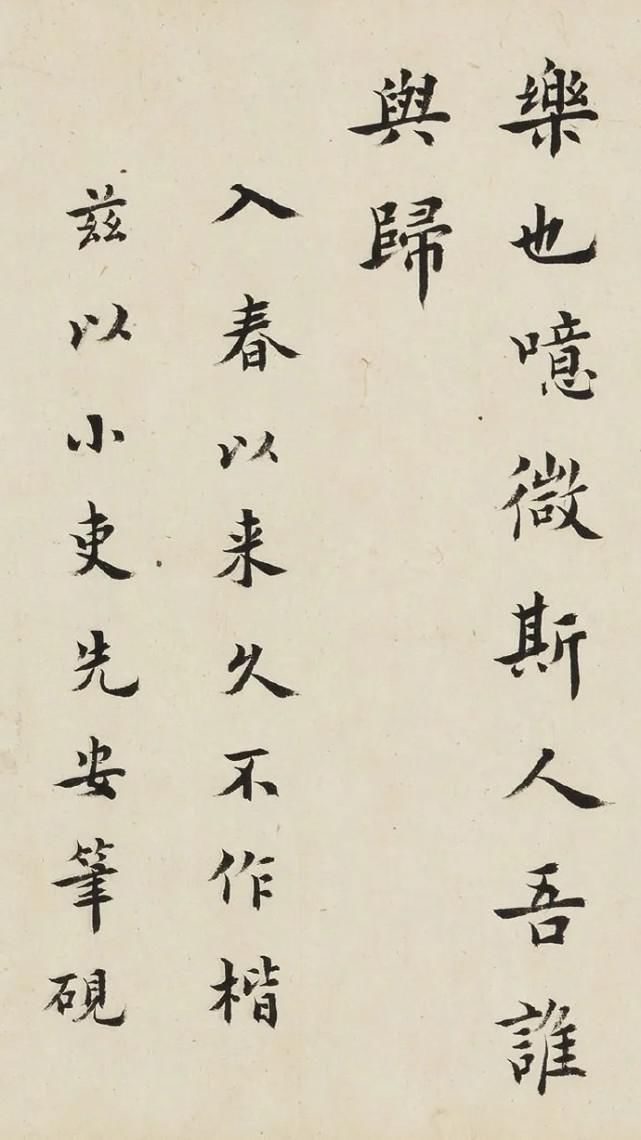 樂也噫微斯人吾誰
與歸
入春以来久不作楷
茲以小吏先安筆硯